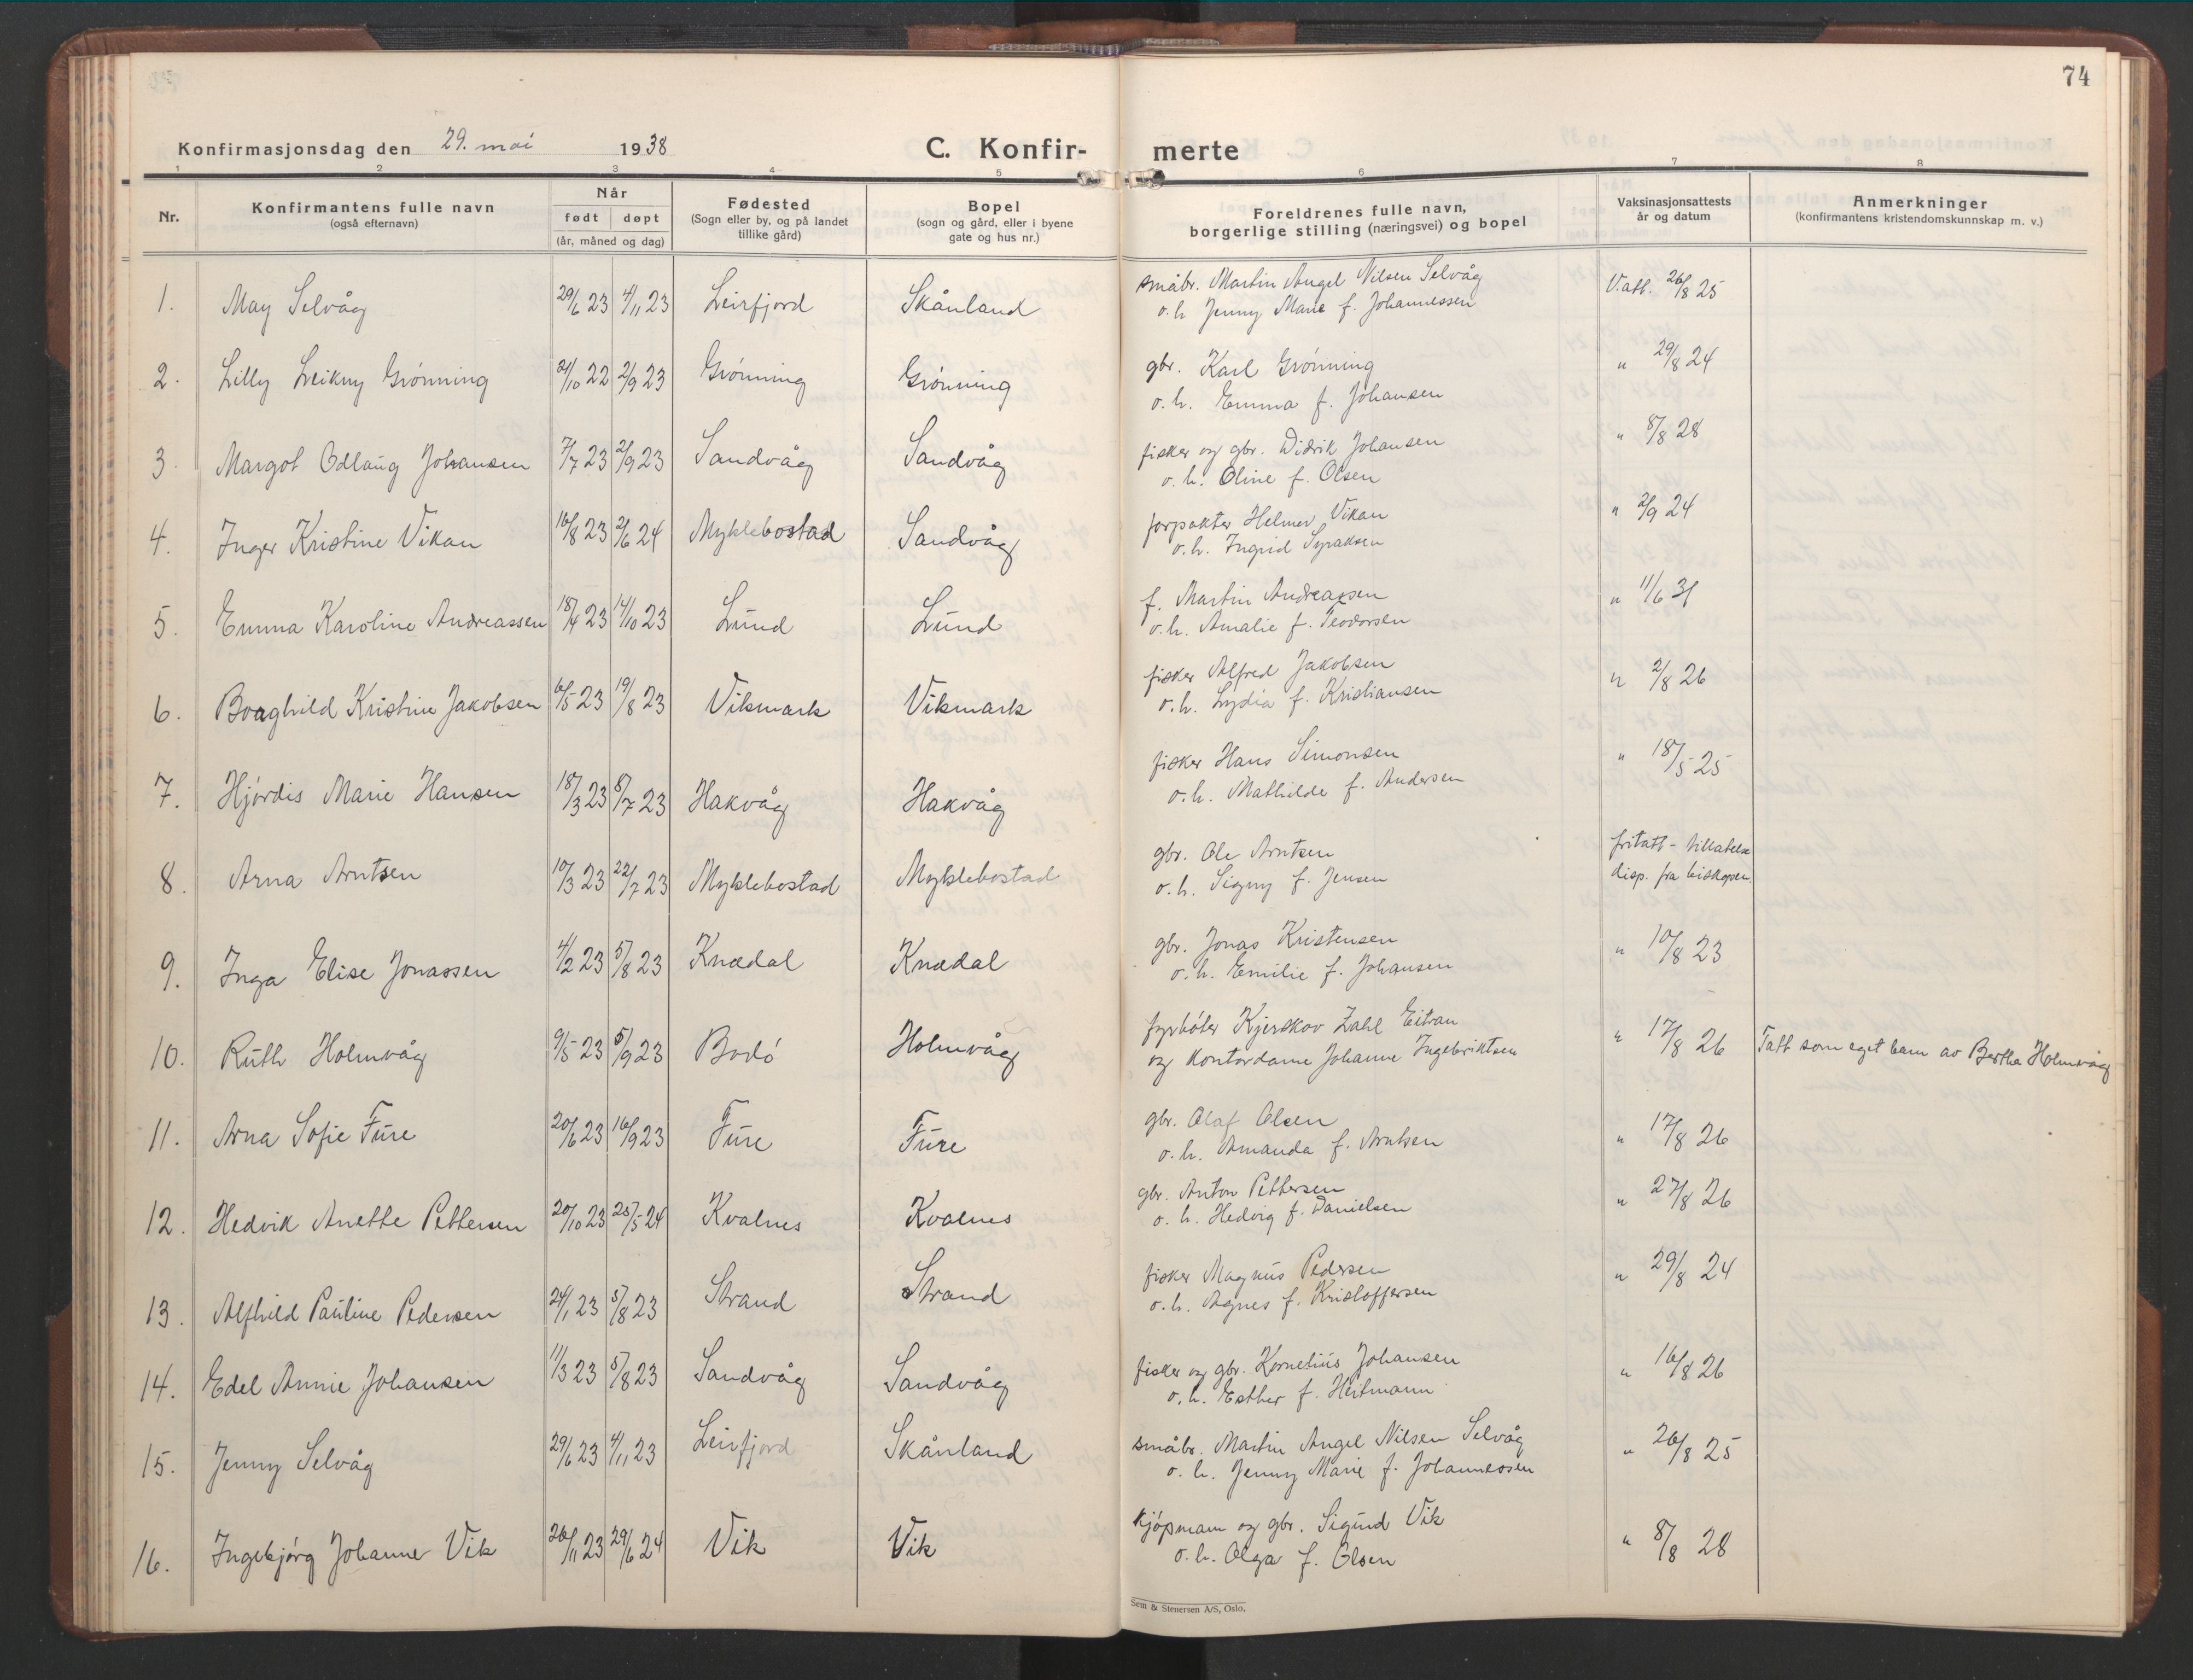 74
Konfirmasjonsdag den 29. mai 1938
C. Konfir-
merte
1 2 3 4 5 6 7 8
Nr.
Konfirmantens fulle navn
(også efternavn)
Når
født døpt
(år, måned og dag)
Fødested
(Sogn eller by, og på landet
tillike gård)
Bopel
(sogn og gård, eller i byene
gate og hus nr.)
Foreldrenes fulle navn,
borgerlige stilling (næringsvei) og bopel
Vaksinasjonsattests
år og datum
Anmerkninger
(konfirmantens kristendomskunnskap m. v.)
1. May Selvåg 29/6 23 4/11 23 Leirfjord Skånland småbr. Martin Angel Nilsen Selvåg V.att. 26/8 25
o. h. Jenny Marie f. Johannessen
2. Lilly Leikny Grönning 22 2/9 23 Grönning Grönning gbr. Karl Grönning " 29/8 24
o. h. Emma f. Johansen
3. Margot Odlaug Johansen 7/7 23 2/9 23 Sandvåg Sandvåg fisker og gbr. Didrik Johansen " 8/8 28
o. h. Oline f. Olsen
4. Inger Kristine Vikan 16/8 23 2/6 24 Myklebostad Sandvåg forpakter Helmer Vikan " 2/9 24
o. h. Ingrid Syraksen
5. Emma Karoline Andreassen 18/4 23 14/10 23 Lund Lund f. Martin Andreassen " 11/6 31
o. h. Amalie f. Teodorsen
6. Boaghild Kristine Jakobsen 6/5 23 19/8 23 Vikmark Vikmark fisker Alfred Jakobsen " 2/8 26
o. h. Lydia f. Kristiansen
7. Hjördis Marie Hansen 18/3 23 8/7 23 Hakvåg Hakvåg fisker Hans Simonsen " 18/5 25
o. h. Mathilde f. Andersen
8. Arna Arntsen 10/3 23 22/7 23 Myklebostad Myklebostad gbr. Ole Arntsen fritatt - tillatelse
o. h. Signy f. Jensen disp. fra biskopen.
9. Inga Elise Jonassen 4/2 23 5/8 23 Knædal Knædal gbr. Jonas Kristensen " 10/8 23
o. h. Emilie f. Johansen
10. Ruth Holmvåg 9/5 23 5/9 23 Bodö Holmvåg fyrböter Kjerskov Zahl Eitran " 17/8 26 Tatt som eget barn av Bertha Holmvåg
og kontordame Johanne Ingebriktsen
11. Arna Sofie Fure 20/6 23 16/9 23 Fure Fure gbr. Olaf Olsen " 17/8 26
o. h. Amanda f. Arntsen
12. Hedvik Anette Pettersen 20/10 23 25/5 24 Kvalnes Kvalnes gbr. Anton Pettersen " 27/8 26
o. h. Hedvig f. Danielsen
13. Alfhild Pauline Pedersen 24/1 23 5/8 23 Strand Strand fisker Magnus Pedersen " 29/8 24
o. h. Agnes f. Kristoffersen
14. Edel Annie Johansen 11/3 23 5/8 23 Sandvåg Sandvåg fisker og gbr. Kornelius Johansen " 16/8 26
o. h. Esther f. Heitmann
15. Jenny Selvåg 29/6 23 4/11 23 Leirfjord Skånland småbr. Martin Angel Nilsen Selvåg " 26/8 25
o. h. Jenny Marie f. Johannessen
16. Ingebjörg Johanne Vik 26/11 23 29/6 24 Vik Vik kjöpmann og gbr. Sigund Vik " 8/8 28
o. h. Olga f. Olsen
Sem & Stenersen A/S, Oslo.